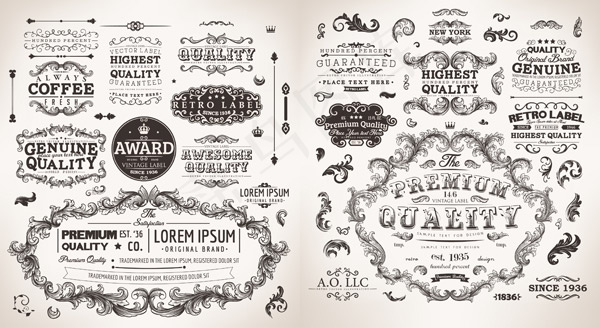 HUNDRED PERCENT
GUARANTEED
ALWAYS
COFFEE
FRESH
VECTOR LABEL
HIGHEST
HUNDRED PERCENT
QUALITY
GUARANTEED
PLACE TEXT HERE
QUALITY
RETRO LABEL
SINCE 1936
GENUINE
QUALITY
AWARD
VINTAGE LABEL
SINCE 1936
AWESOME
QUALITY
LOREM IPSUM
ORIGINAL BRAND
The
Satisfaction
PREMIUM EST. '36
QUALITY ★ CO.
LOREM IPSUM
ORIGINAL BRAND
Premium Quality
TRADEMARKED IN THE LOREM IPSUM, REGISTERED DOLOR SIT
TRADEMARKED IN THE LOREM IPSUM, REGISTERED DOLOR SIT
NEW YORK
HUNDRED PERCENT
GUARANTEED
PLACE YOUR TEXT HERE
HIGHEST
QUALITY
QUALITY
Original Brand
GENUINE
Premium Quality
Place Your Text Here
RETRO LABEL
HIGHEST QUALITY
The
PREMIUM
146
VINTAGE LABEL
QUALITY
SAMPLE TEXT FOR DESIGN
SAMPLE TEXT FOR DESIGN
est. 1935
hundred percent
A.O. LLC
1836
SINCE 1936